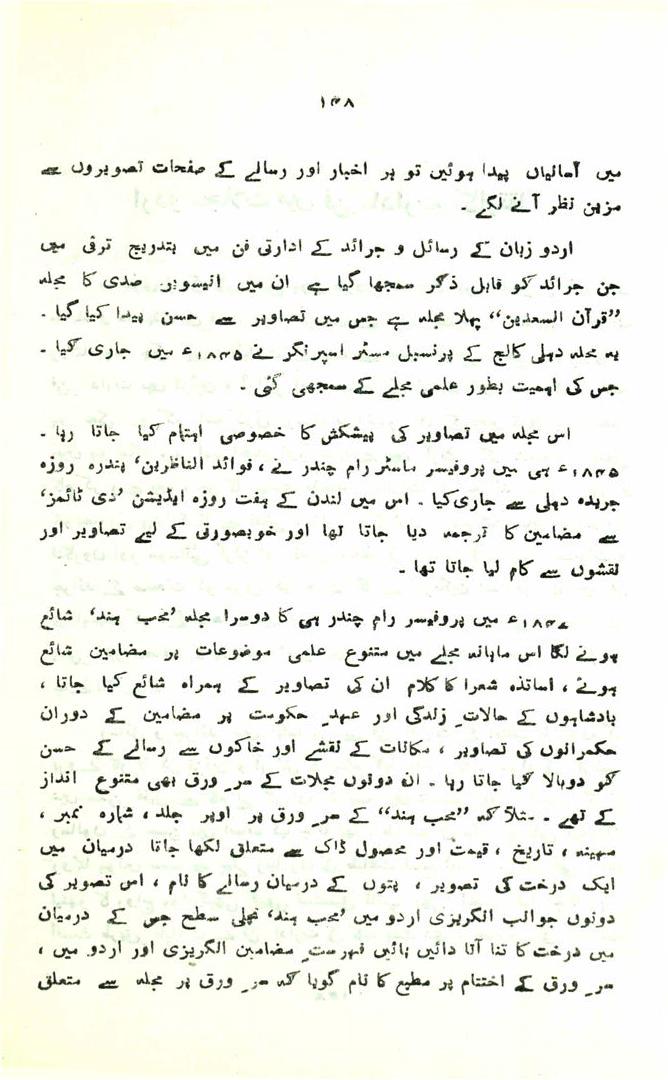 ۱۳۸
میں آسانیاں پیدا ہوئیں تو ہر اخبار اور رسالے کے صفحات تصویروں سے
مزین نظر آنے لگے ۔
اردو زبان کے رسائل و جرائد کے ادارتی فن میں بتدریج ترقی میں
جن جرائد کو قابل ذکر سمجھا گیا ہے ان میں انیسویں صدی کا مجلہ
”قرآن السعدین“ پہلا مجلہ ہے جس میں تصاویر سے حسن پیدا کیا گیا ۔
یہ مجلہ دہلی کالج کے پرنسپل مسٹر اسپرنگر نے ۱۸۴۵ء میں جاری کیا ۔
جس کی اہمیت بطور علمی مجلے کے سمجھی گئی ۔
اس مجلہ میں تصاویر کی پیشکش کا خصوصی اہتمام کیا جاتا رہا ۔
۱۸۴۵ء ہی میں پروفیسر ماسٹر رام چندر نے ، فوائد الناظرین‘ پندرہ روزہ
جریدہ دہلی سے جاری کیا ۔ اس میں لندن کے ہفت روزہ ایڈیشن ’دی ٹائمز‘
سے مضامین کا ترجمہ دیا جاتا تھا اور خوبصورتی کے لیے تصاویر اور
نقشوں سے کام لیا جاتا تھا ۔
۱۸۴۷ء میں پروفیسر رام چندر ہی کا دوسرا مجلہ ’محب ہند‘ شائع
ہونے لگا اس ماہانہ مجلے میں متنوع علمی موضوعات پر مضامین شائع
ہوتے ، اساتذہ شعرا کا کلام ان کی تصاویر کے ہمراہ شائع کیا جاتا ،
بادشاہوں کے حالاتِ زندگی اور عہدِ حکومت پر مضامین کے دوران
حکمرانوں کی تصاویر ، مکانات کے نقشے اور خاکوں سے رسالے کے حسن
کو دوبالا کیا جاتا رہا ۔ ان دونوں مجلات کے سرِ ورق بھی متنوع انداز
کے تھے ۔ مثلاً کہ ”محب ہند“ کے سرِ ورق پر اوپر جلد ، شمارہ نمبر ،
مہینہ ، تاریخ ، قیمت اور محصول ڈاک سے متعلق لکھا جاتا درمیان میں
ایک درخت کی تصویر ، پتوں کے درمیان رسالے کا نام ، اس تصویر کی
دونوں جوانب انگریزی اردو میں ’محب ہند‘ نچلی سطح جس کے درمیان
میں درخت کا تنا آتا دائیں بائیں فہرستِ مضامین انگریزی اور اردو میں ،
سرِ ورق کے اختتام پر مطبع کا نام گویا کہ سرِ ورق پر مجلہ سے متعلق